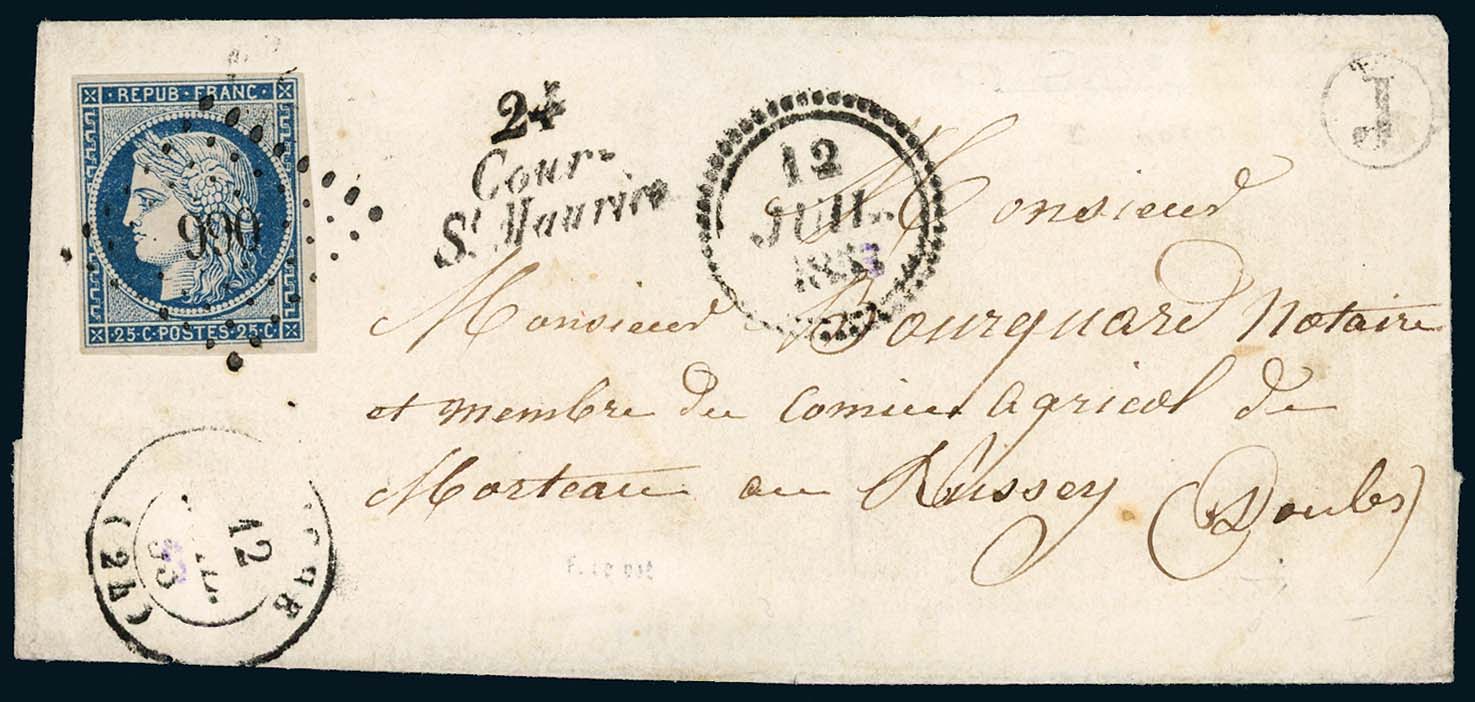 REPUB·FRANC·
990
25·C·POSTES·25·C
24
Cour-
St Maurice
12
JUIL.
J
Monsieur
Monsieur Bourquard Notaire
et membre du Comice Agricol de
Morteau au Russey (Doubs)
12
53
(24)